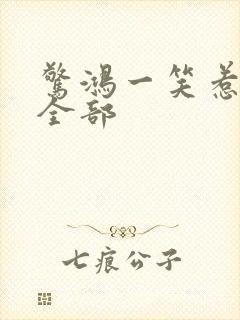 驚鴻一笑惹
全部
七痕公子